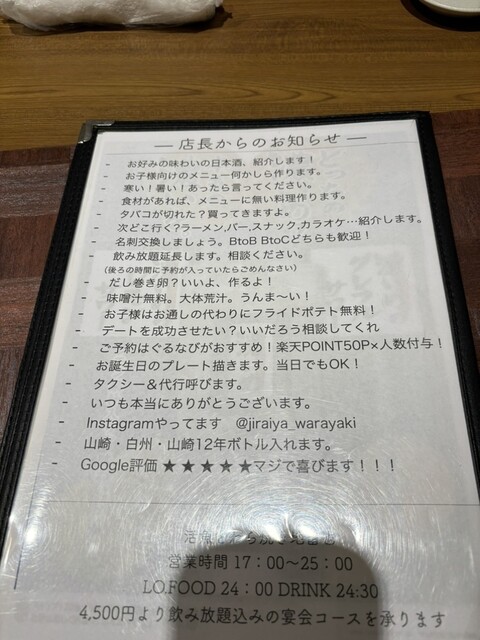 ― 店長からのお知らせ ―
- お好みの味わいの日本酒、紹介します！
- お子様向けのメニュー何かしら作ります。
- 寒い！暑い！あったら言ってください。
- 食材があれば、メニューに無い料理作ります。
- タバコが切れた？買ってきますよ。
- 次どこ行く?ラーメン,バー,スナック,カラオケ…紹介します。
- 名刺交換しましょう。BtoB BtoCどちらも歓迎！
- 飲み放題延長します。相談ください。
（後ろの時間に予約が入っていたらごめんなさい）
- だし巻き卵？いいよ、作るよ！
- 味噌汁無料。大体荒汁。うんま～い！
- お子様はお通しの代わりにフライドポテト無料！
- デートを成功させたい？いいだろう相談してくれ
- ご予約はぐるなびがおすすめ！楽天POINT50P×人数付与！
- お誕生日のプレート描きます。当日でもOK！
- タクシー＆代行呼びます。
- いつも本当にありがとうございます。
- Instagramやってます　@jiraiya_warayaki
- 山崎・白州・山崎12年ボトル入れます。
- Google評価 ★★★★★マジで喜びます！！！
営業時間 17：00～25：00
LO.FOOD 24：00 DRINK 24:30
4,500円より飲み放題込みの宴会コースを承ります